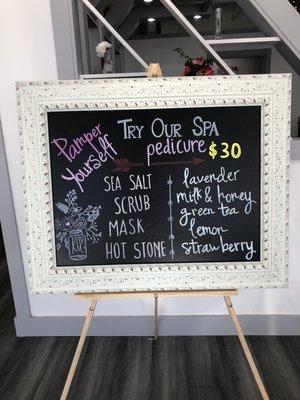 Pamper
Yourself
TRY OUR SPA
pedicure $30
SEA SALT
SCRUB
MASK
HOT STONE
lavender
milk & honey
green tea
lemon
strawberry